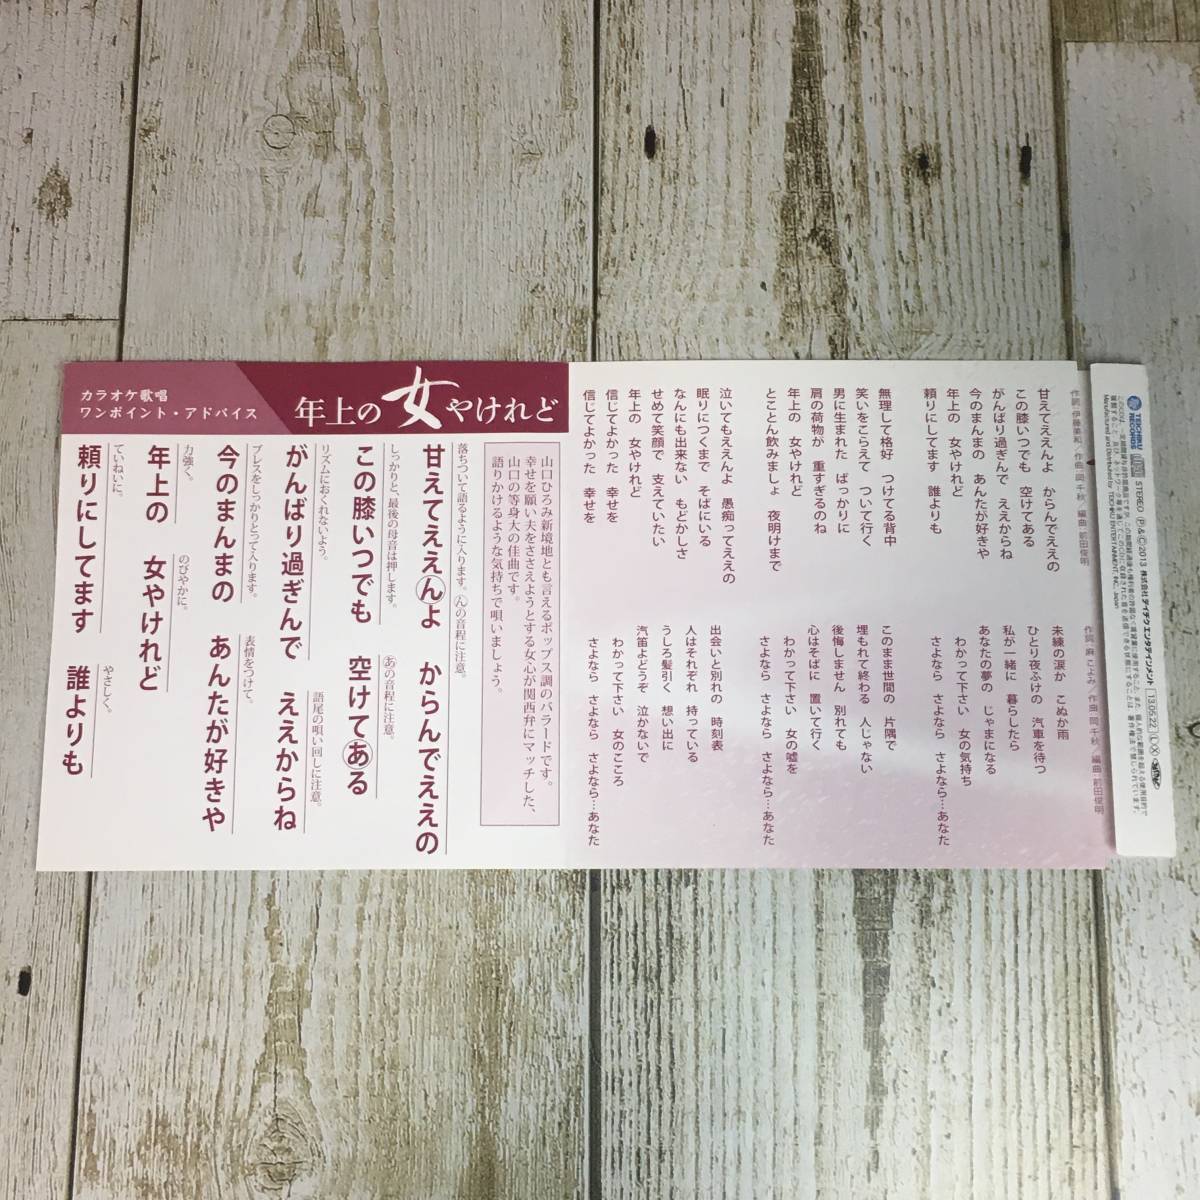 カラオケ歌唱
ワンポイント・アドバイス
年上の女やけれど
山口ひろみ新境地とも言えるポップス調のバラードです。
幸せを願い夫をささえようとする女心が関西弁にマッチした、
山口の等身大の佳曲です。
語りかけるような気持ちで唄いましょう。
落ちついて語るように入ります。んの音程に注意。
甘えてええんよ からんでええの
しっかりと、最後の母音は押します。 あの音程に注意。
この膝いつでも 空けてある
リズムにおくれないよう。 語尾の唄い回しに注意。
がんばり過ぎんで ええからね
ブレスをしっかりとって入ります。 表情をつけて。
今のまんまの あんたが好きや
力強く。 のびやかに。
年上の 女やけれど
ていねいに。 やさしく。
頼りにしてます 誰よりも
作曲:岡 千秋/編曲:前田俊明
甘えてええんよ からんでええの
この膝いつでも 空けてある
がんばり過ぎんで ええからね
今のまんまの あんたが好きや
年上の 女やけれど
頼りにしてます 誰よりも
無理して格好 つけてる背中
笑いをこらえて ついて行く
男に生まれた ばっかりに
肩の荷物が 重すぎるのね
年上の 女やけれど
とことん飲みましょ 夜明けまで
泣いてもええんよ 愚痴ってええの
眠りにつくまで そばにいる
なんにも出来ない もどかしさ
せめて笑顔で 支えていたい
年上の 女やけれど
信じてよかった 幸せを
信じてよかった 幸せを
作詞:麻 こよみ/作曲:岡 千秋/編曲:前田俊明
未練の涙か こぬか雨
ひとり夜ふけの 汽車を待つ
私が一緒に 暮らしたら
あなたの夢の じゃまになる
わかって下さい 女の気持ち
さよなら さよなら さよなら…あなた
このまま世間の 片隅で
埋もれて終わる 人じゃない
後悔しません 別れても
心はそばに 置いて行く
わかって下さい 女の嘘を
さよなら さよなら さよなら…あなた
出会いと別れの 時刻表
人はそれぞれ 持っている
うしろ髪引く 想い出に
汽笛よどうぞ 泣かないで
わかって下さい 女のこころ
さよなら さよなら さよなら…あなた
TEICHIKU RECORDS STEREO Ⓟ&Ⓒ2013 株式会社テイチクエンタテインメント 13.05.22 Ⓛ Ⓧ
Manufactured and Distributed by TEICHIKU ENTERTAINMENT, INC. Japan